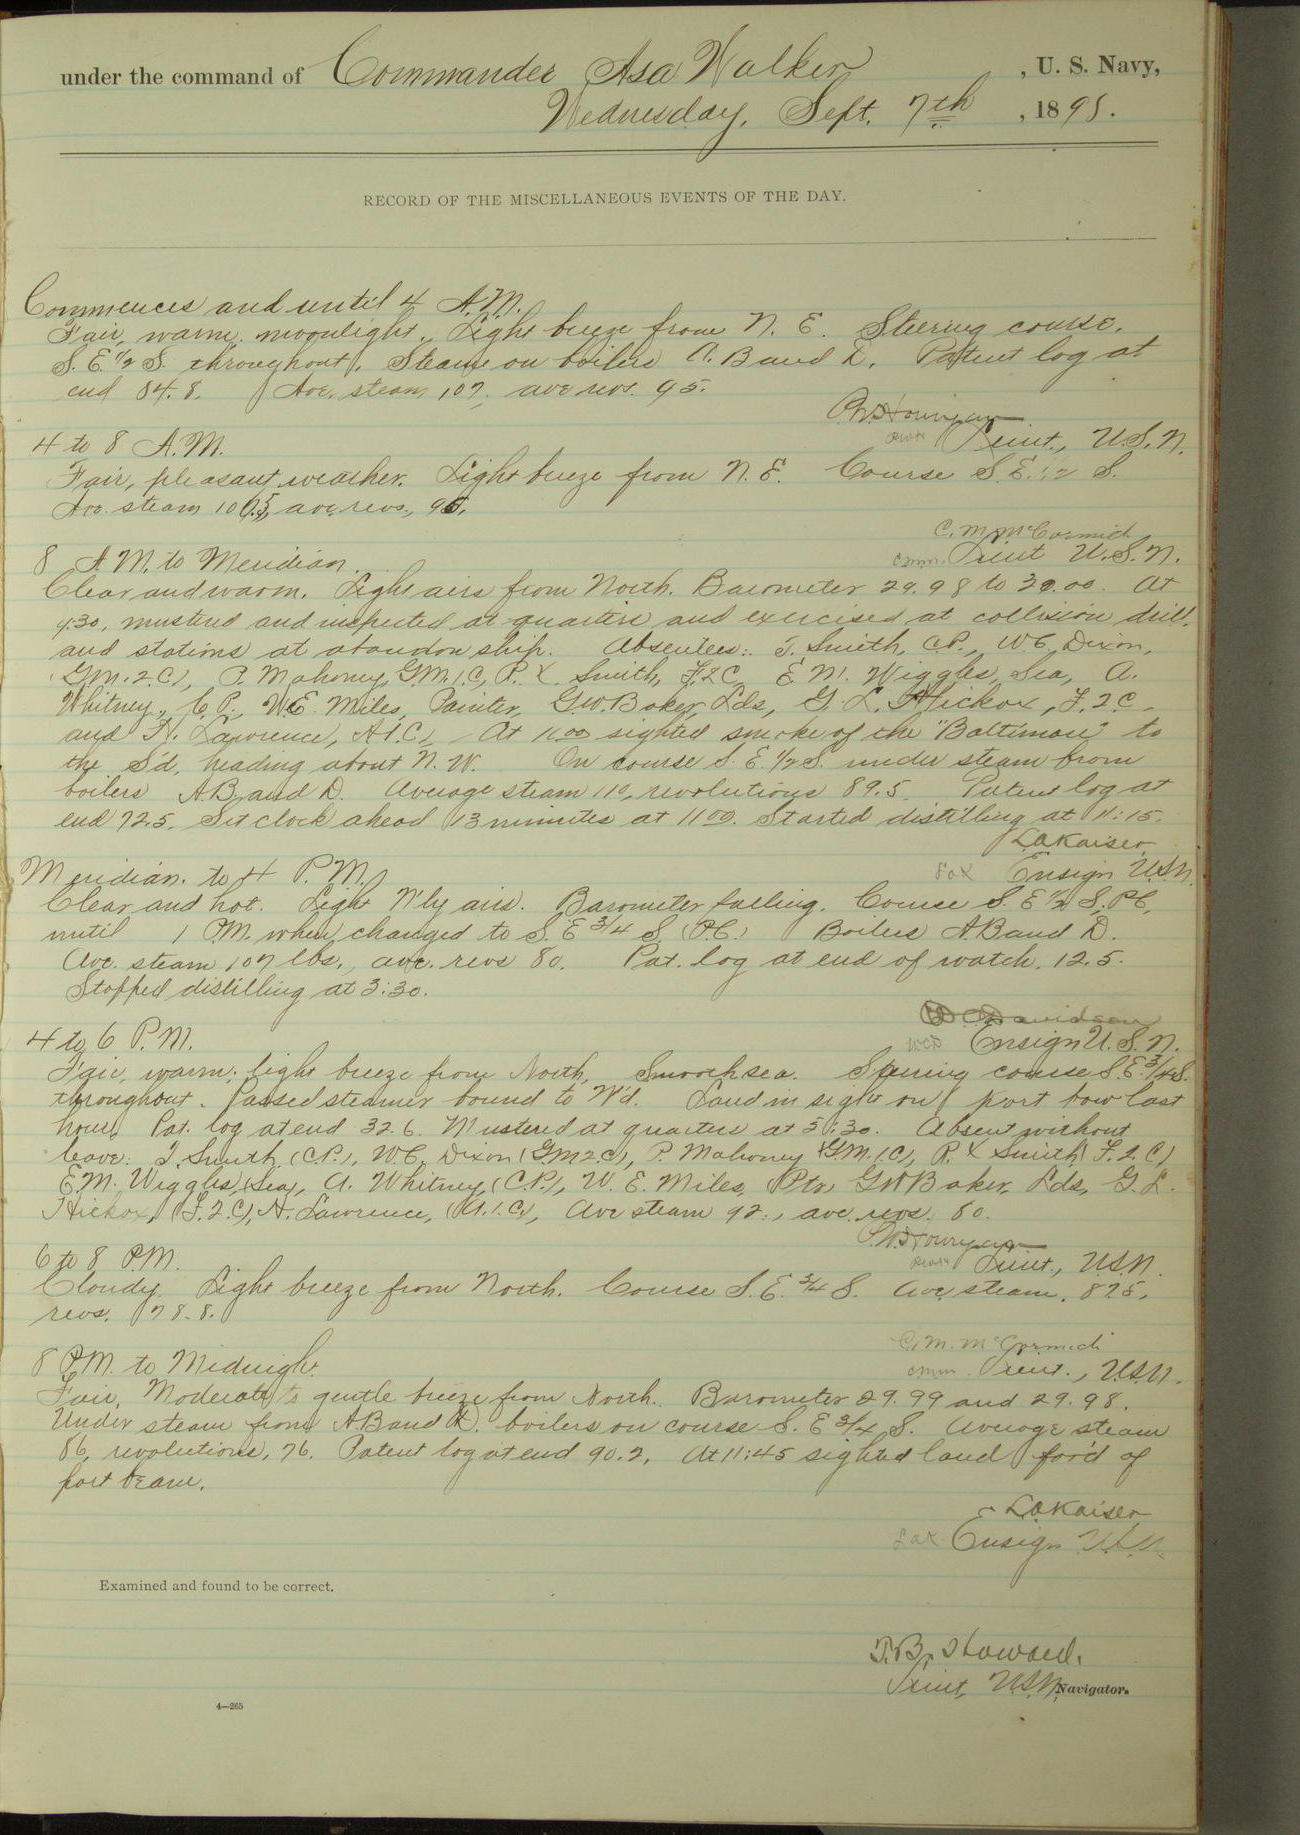 under the command of Commander Asa Walker, U. S. Navy,
Wednesday, Sept. 7th, 1898.
RECORD OF THE MISCELLANEOUS EVENTS OF THE DAY.
Commences and until 4 A.M.
Fair, warm, moonlight. Light breeze from N. E. Steering course,
S. E. 1/2 S. throughout. Steam on boilers A. B and D. Patent log at
end 84.8. Ave. steam, 107, ave revs. 95.
P.W. Hourigan
4 to 8 A.M.
Lieut., U.S.N.
Fair, pleasant weather. Light breeze from N. E. Course S. E. 1/2 S.
Ave. steam 107.5, ave. revs., 95.
C. M. McCormick
8 A.M. to Meridian.
cmm. Lieut U.S.N.
Clear and warm. Light airs from North. Barometer 29.98 to 30.00. At
9:30, mustered and inspected at quarters and exercised at collision drill,
and stations at abandon ship. Absentees: T. Smith, C.P., W. C. Dixon,
(G.M. 2.C), P. Mahoney, G.M.1.C, R. X. Smith, F.2.C, E. M. Wiggles, Sea, A.
Whitney, C. P., W.E. Miles, Painter, G.W. Baker, Lds, G. L. Hickox, F. 2.C.
and H. Lawrence, A.1.C, At 11.00 sighted smoke of the "Baltimore" to
the S'd, heading about N. W. On course S. E. 1/2 S. under steam from
boilers A.B. and D. Average steam 110, revolutions 89.5. Patent log at
end 72.5. Set clock ahead 13 minutes at 11.00. Started distilling at 11:15.
L.A. Kaiser
Meridian. to 4 P.M.
Lak Ensign U.S.N.
Clear and hot. Light N'ly airs. Barometer falling. Course S. E 1/2 S. P.C.
until 1 P.M. when changed to S. E 3/4 S. (P.C.) Boilers A.B and D.
Ave. steam 107 lbs., ave. revs 80. Pat. log at end of watch. 12.5.
Stopped distilling at 3:30.
W. C. Davidson
4 to 6 P.M.
WCD Ensign U. S. N.
Fair, warm; light breeze from North, Smooth sea. Steering course S. E. 3/4 S.
throughout. Passed steamer bound to W'd. Land in sight on port bow last
hour. Pat. log at end 32.6. Mustered at quarters at 5:30. Absent without
leave: T. Smith (C.P.), W.C. Dixon (G.M.2.C), P. Mahoney (G.M.1.C), R. X Smith F. 2. C)
E.M. Wiggles, (Sea), A. Whitney, (C.P.), W. E. Miles, (Ptr) G.W. Baker, Lds, G. L.
Hickox, (F. 2.C), H. Lawrence, (A.1.C.), Ave steam 92., ave. revs. 80.
P.W. Hourigan
6 to 8 P.M.
Lieut., U.S.N.
Cloudy. Light breeze from North. Course S. E. 3/4 S. Ave steam. 87.5,
revs. 78.8.
C. M. McCormick
8 P.M. to Midnight
cmm. Lieut., U.S.N.
Fair, Moderate to gentle breeze from North. Barometer 29.99 and 29.98.
Under steam from A.B and D. boilers on course S. E 3/4 S. Average steam
86, revolutions, 76. Patent log at end 90.2, At 11:45 sighted land for'd of
port beam.
L.A. Kaiser
Lak. Ensign U.S.N.
Examined and found to be correct.
T. B. Howard.
Lieut, U.S.N., Navigator.
4—265